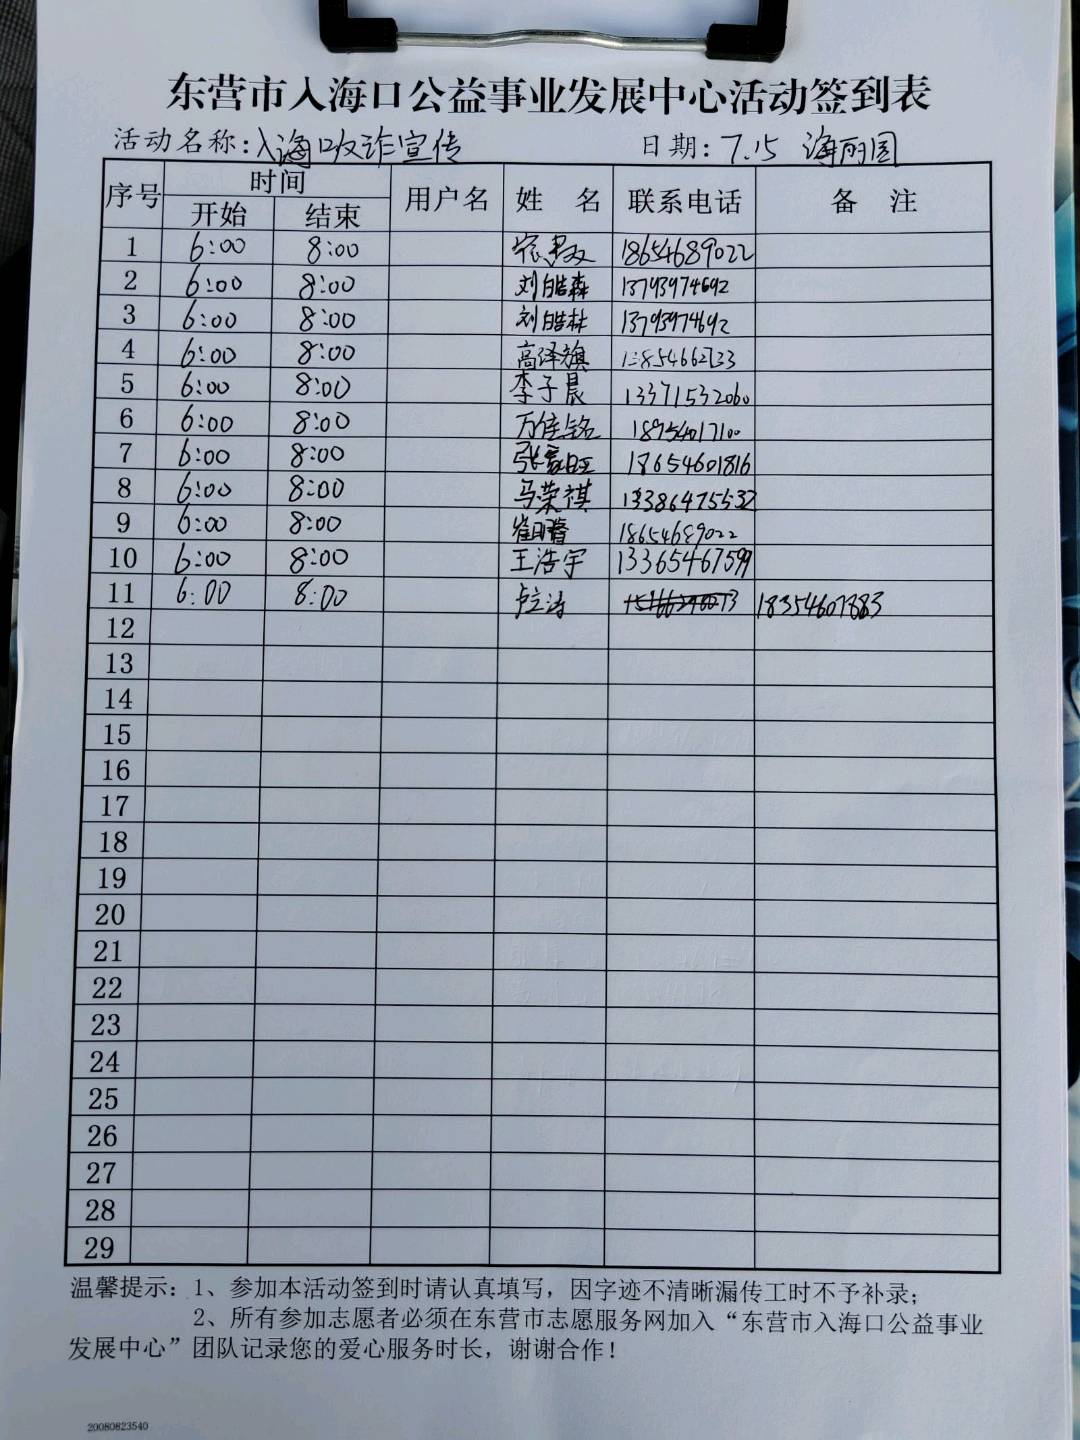 东营市入海口公益事业发展中心活动签到表
活动名称:入海口反诈宣传 日期:7.15 海丽园
序号 时间 用户名 姓 名 联系电话 备 注
开始 结束
1 6:00 8:00 18654689022
2 6:00 8:00 刘皓森 13793974692
3 6:00 8:00 刘皓林 13793974692
4 6:00 8:00 高泽旗
5 6:00 8:00 李子晨 13371532060
6 6:00 8:00 万佳铭 18954017100
7 6:00 8:00 张家旺 18654601816
8 6:00 8:00 马荣祺 13386475532
9 6:00 8:00 18654689022
10 6:00 8:00 王浩宇 13365467599
11 6:00 8:00 卢立涛 18354607883
12
13
14
15
16
17
18
19
20
21
22
23
24
25
26
27
28
29
温馨提示:1、参加本活动签到时请认真填写,因字迹不清晰漏传工时不予补录;
2、所有参加志愿者必须在东营市志愿服务网加入“东营市入海口公益事业
发展中心”团队记录您的爱心服务时长,谢谢合作!
20080823540